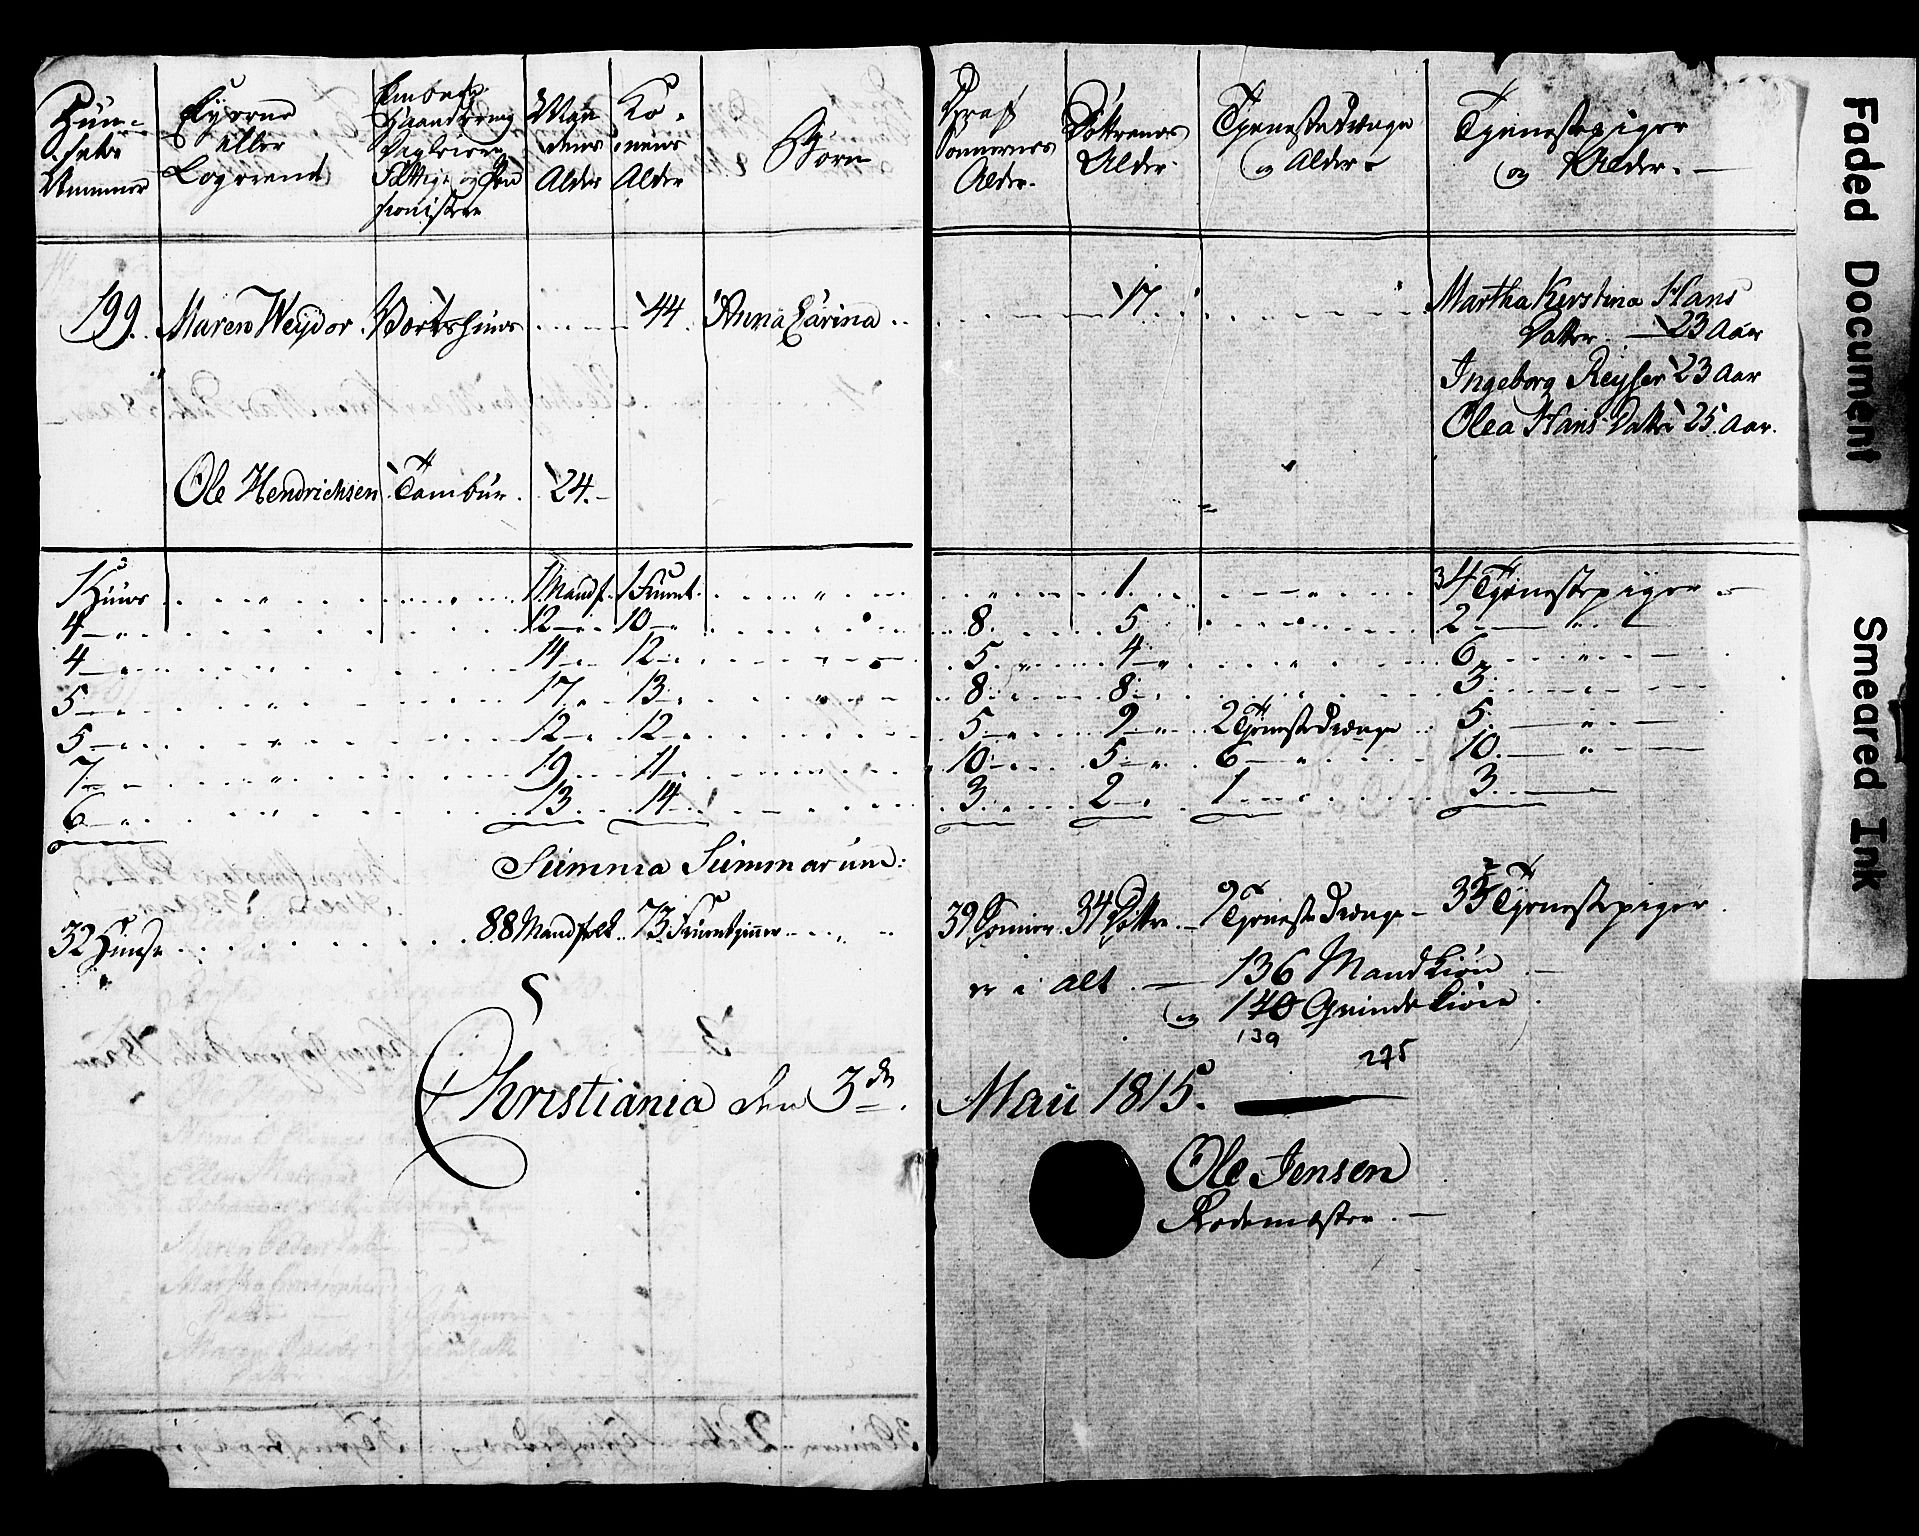 Huu=
sets
Nummer
Eyerne
eller
Logerend
Embede
Haandtering
Næhring
Fattige og Pen
sionister
Man
dens
Alder
Ko
nens
Alder
Børn
Deraf
Sønnernes
Alder.
Døttrenes
Alder.
Tjenestedrænge
og Alder.
Tjenestepiger
og Alder. —
199. Maren Weydor. Værtshuus 44. Anna Carina 17
Martha Kirstina Hans
Datter. — 23 Aar
Ingeborg Reyser 23 Aar
Olea Hans Datter 25. Aar.
Ole Hendrichsen Tambur. 24.
1 Huus 1 Mandf. 1 Fruent. 1 34 Tjenestepiger
4 12 10 8 5 2
4 14 12 5 4 6
5 17 13 8 8 3
5 12 12 5 9 2 Tjenestedrænge 5
7 19 11 10 5 6 10
6 13 14 3 2 1 3
Summa Summarum:
32 Huuse 88 Mandfolk 73 Fruentzimmer 39 Sønner 34 Døttre 9 Tjeneste Drænge 33 Tjenestepiger
er i alt — 136 Mandkiøn
og 140 Qvindekiøn
139
275
Christiania den 3de Maii 1815.
Ole Jensen
Rodemester. —
Faded Document
Smeared Ink